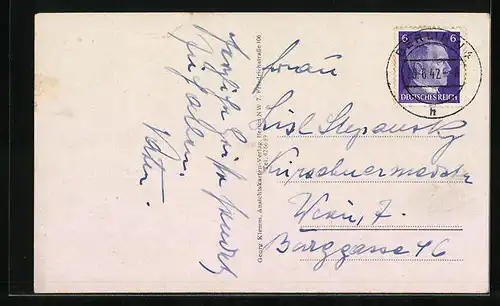 herzliche Grüße sendet
Euch allen
Vater.
Georg Klemm, Ansichtskarten-Verlag, Berlin NW 7, Friedrichstraße 106
Frau
Lisl Stepansky
Kürschnermeister
Wien, 7.
Burggasse 46
6 6
DEUTSCHES REICH
BERLIN
6.42
h